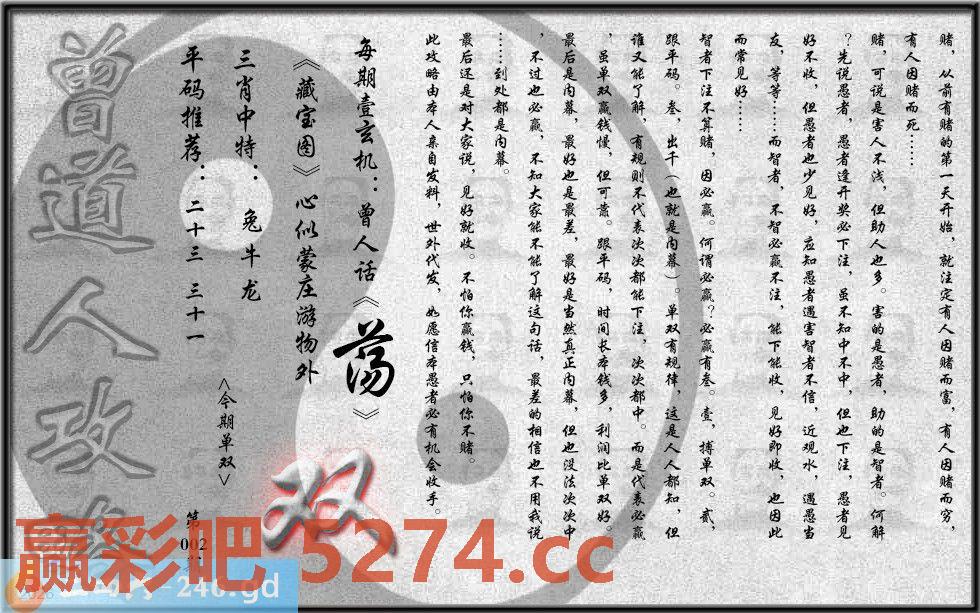 赌，从前有赌的第一天开始，就注定有人因赌而富，有人因赌而穷，
有人因赌而死……
赌，可说是害人不浅，但助人也多。害的是愚者，助的是智者。何解
？先说愚者，愚者逢开奖必下注，虽不知中不中，但也下注，愚者见
好不收，但愚者也少见好，应知愚者遇害智者不信，近观水，遇愚当
友，等等……而智者，不智必赢不注，能下能收，见好即收，也因此
而常见好……
智者下注不算赌，因必赢。何谓必赢？必赢有叁。壹，搏单双。贰，
跟平码。叁，出千（也就是内幕）。单双有规律，这是人人都知，但
谁又能了解，有规则不代表次次都能下注，次次都中。而是代表必赢
，虽单双赢钱慢，但可靠。跟平码，时间长本钱多，利润比单双好。
最后是内幕，最好也是最差，最好是当然真正内幕，但也没法次次中
，不过也必赢，不知大家能不能了解这句话，最差的相信也不用我说
……到处都是内幕。
最后还是对大家说，见好就收。不怕你赢钱，只怕你不赌。
此攻略由本人亲自发料，世外代发，如愿信本愚者必有机会收手。
每期壹玄机：曾人话《荡》
《藏宝图》心似蒙庄游物外
三肖中特：兔牛龙
平码推荐：二十三 三十一
<今期单双>
双
第002
曾道人攻
赢彩吧 5274.cc
-246.gd